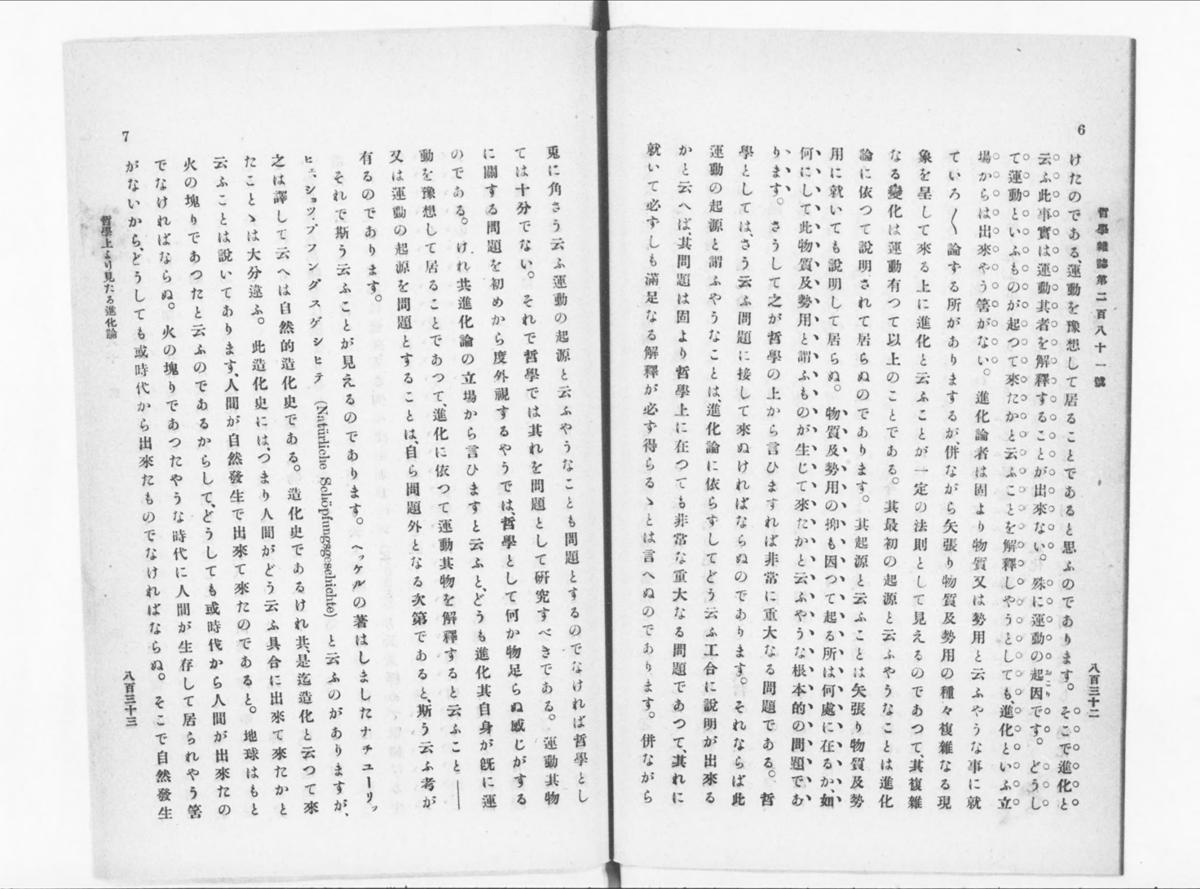 6
哲學雜誌第二百八十一號
八百三十二
けたのである、運動を豫想して居ることであると思ふのであります。そこで進化と
云ふ此事實は運動其者を解釋することが出來ない。殊に運動の起因です。どうし
て運動といふものが起つて來たかと云ふことを解釋しやうとしても進化といふ立
場からは出來やう筈がない。進化論者は固より物質又は勢用と云ふやうな事に就
ていろ〱論する所がありまするが、併ながら矢張り物質及勢用の種々複雜なる現
象を呈して來る上に進化と云ふことが一定の法則として見えるのであつて其複雜
なる變化は運動有つて以上のことである。其最初の起源と云ふやうなことは進化
論に依つて說明されて居らぬのであります。其起源と云ふことは矢張り物質及勢
用に就いても說明して居らぬ。物質及勢用の抑も因つて起る所は何處に在るか、如
何にして此物質及勢用と謂ふものが生じて來たかと云ふやうな根本的の問題であ
ります。さうして之が哲學の上から言ひますれば非常に重大なる問題である。哲
學としては、さう云ふ問題に接して來ぬければならぬのであります。それならば此
運動の起源と謂ふやうなことは進化論に依らずしてどう云ふ工合に說明が出來る
かと云へば、其問題は固より哲學上に在つても非常な重大なる問題であつて、其れに
就いて必ずしも滿足なる解釋が必ず得らるゝとは言へぬのであります。併ながら
兎に角さう云ふ運動の起源と云ふやうなことも問題とするのでなければ哲學とし
ては十分でない。それで哲學では其れを問題として硏究すべきである。運動其物
に關する問題を初めから度外視するやうでは、哲學として何か物足らぬ感じがする
のである。けれ共進化論の立場から言ひますと云ふと、どうも進化其自身が既に運
動を豫想して居ることであつて、進化に依つて運動其物を解釋すると云ふこと――
又は運動の起源を問題とすることは、自ら問題外となる次第であると、斯う云ふ考が
有るのであります。
それで斯う云ふことが見えるのであります。ヘッケルの著はしましたナチューリッ
ヒェショッフンダスゲシヒテ (Natürliche Schöpfungsgeschichte) と云ふのがありますが、
之は譯して云へは自然的造化史である。造化史であるけれ共、是迄造化と云つて來
たことゝは大分違ふ。此造化史には、つまり人間がどう云ふ具合に出來て來たかと
云ふことは說いてあります、人間が自然發生で出來て來たのであると。地球はもと
火の塊りであつたと云ふのであるからして、どうしても或時代から人間が出來たの
でなければならぬ。火の塊りであつたやうな時代に人間が生存して居られやう筈
がないから、どうしても或時代から出來たものでなければならぬ。そこで自然發生
7
哲學上より見たる進化論
八百三十三